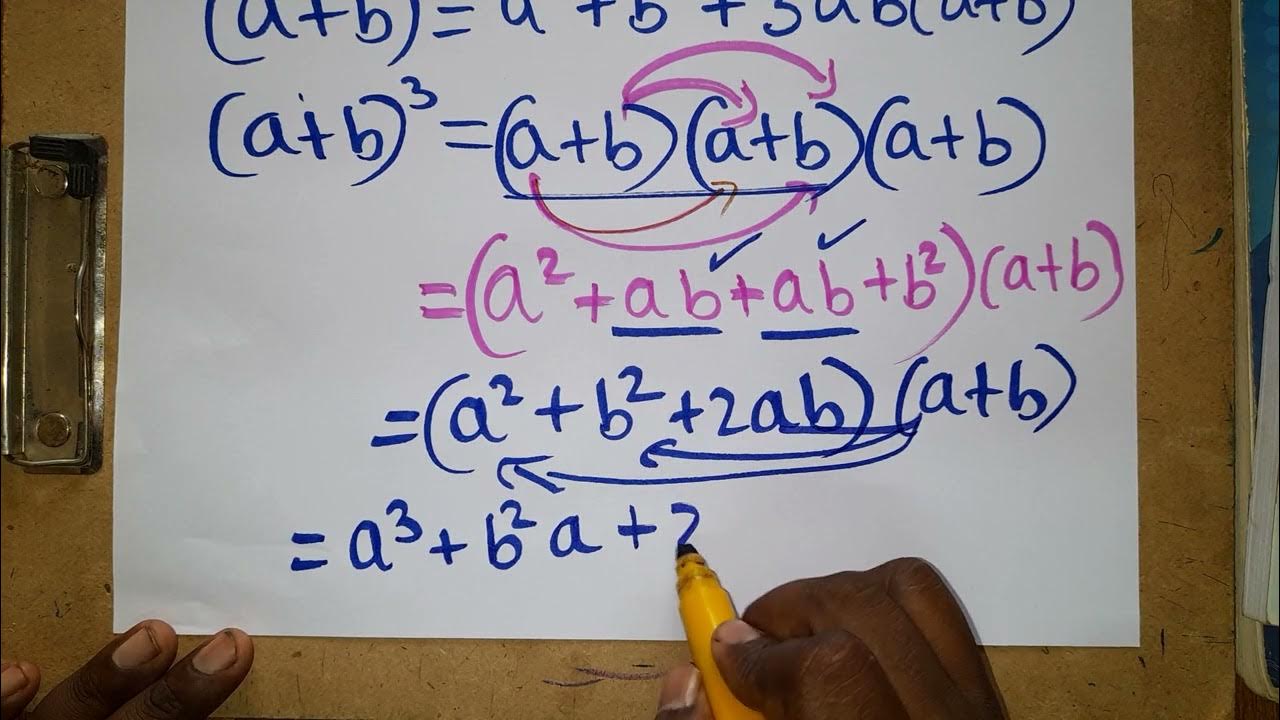 (a+b) = a + b + 3ab(a+b)
(a+b)³ = (a+b)(a+b)(a+b)
= (a² + ab + ab + b²)(a+b)
= (a² + b² + 2ab)(a+b)
= a³ + b²a + 2